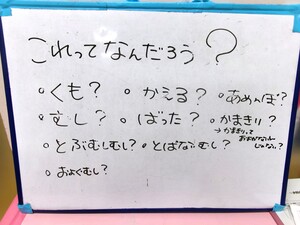 これってなんだろう？
・くも？ ・かえる？ ・あめんぼ？
・むし？ ・ばった？ ・かまきり？
→かまきりって
おおかな
じゃない？
・とぶむしむし？ ・とばないむし？
・およぐむし？